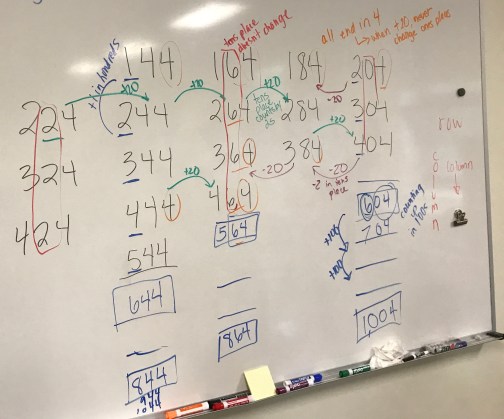 tens place
doesn't change
all end in 4
when +20, never
change ones place
+1 in hundreds
144 164 184 204
+20 +20 +20 -20
224 244 264 284 304
tens
place
+20
324 344 364 384 404
+20 -20 -20
-2 in tens
place
424 444 464
544 564 604
counting
in 100s
704
+100
+100
644
864
1,004
844
944
1044
row
column